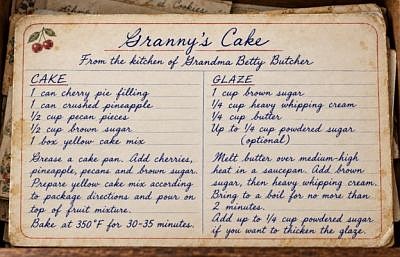 Granny's Cake
From the kitchen of Grandma Betty Butcher
CAKE
1 can cherry pie filling
1 can crushed pineapple
1/2 cup pecan pieces
1/2 cup brown sugar
1 box yellow cake mix
Grease a cake pan. Add cherries,
pineapple, pecans and brown sugar.
Prepare yellow cake mix according
to package directions and pour on
top of fruit mixture.
Bake at 350°F for 30-35 minutes.
GLAZE
1 cup brown sugar
1/4 cup heavy whipping cream
1/4 cup butter
Up to 1/4 cup powdered sugar
(optional)
Melt butter over medium-high
heat in a saucepan. Add brown
sugar, then heavy whipping cream.
Bring to a boil for no more than
2 minutes.
Add up to 1/4 cup powdered sugar
if you want to thicken the glaze.